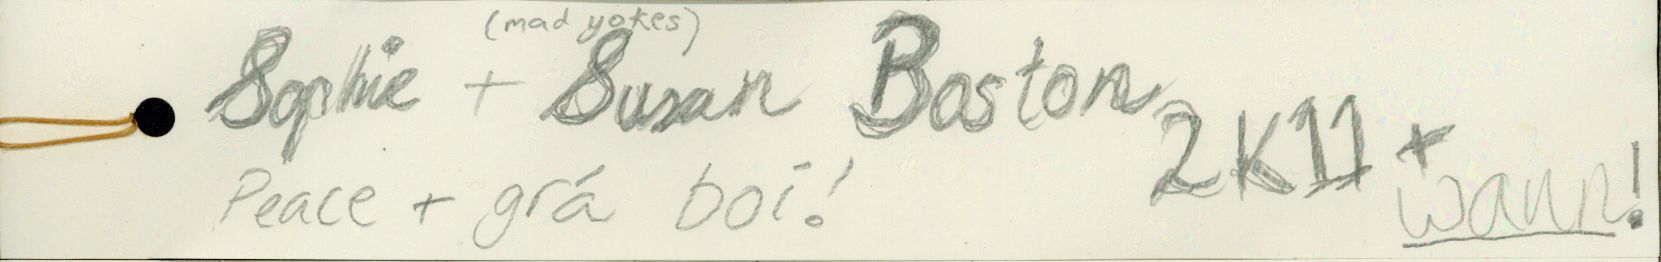 (mad yokes)
Sophie + Susan Boston
2K11 +
Peace + grá boi!